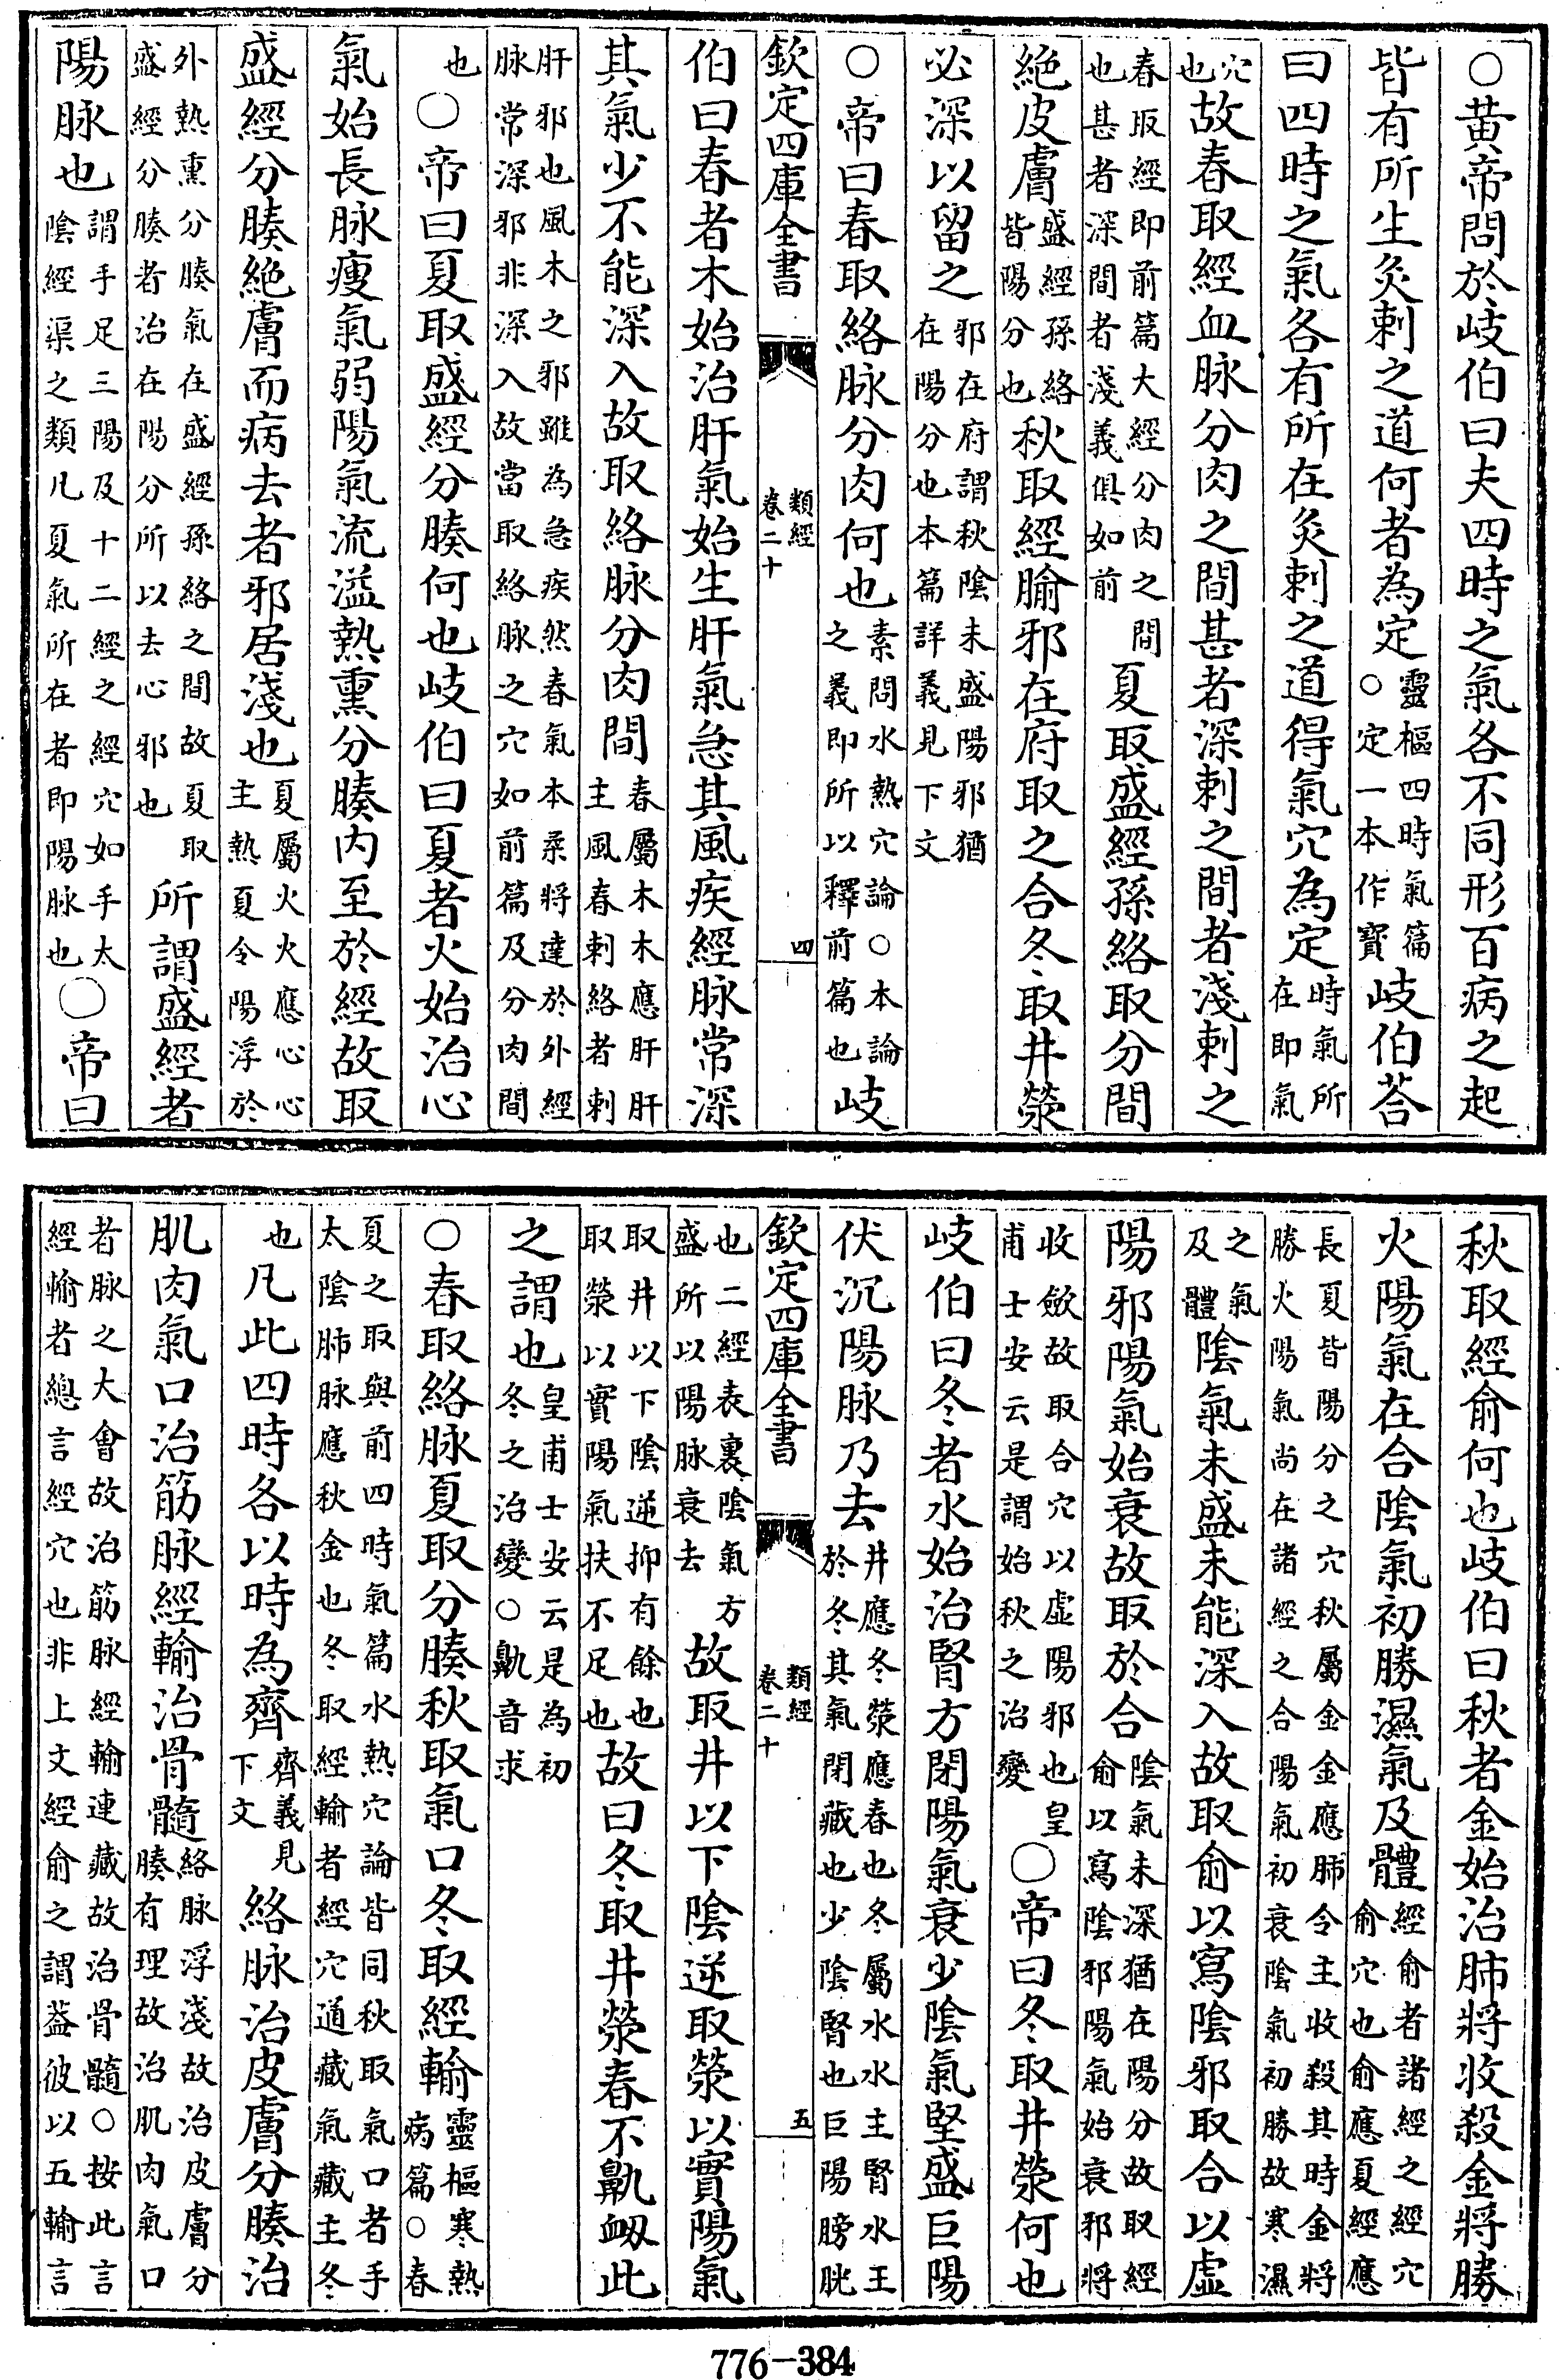 ○黄帝問於岐伯曰夫四時之氣各不同形百病之起
皆有所生灸刺之道何者為定靈樞四時氣篇○定一本作寳岐伯荅
曰四時之氣各有所在灸刺之道得氣穴為定時氣所在即氣
穴也故春取經血脉分肉之間甚者深刺之間者淺刺之
春取經即前篇大經分肉之間也甚者深間者淺義俱如前夏取盛經孫絡取分間
絶皮膚盛經孫絡皆陽分也秋取經腧邪在府取之合冬取井滎
必深以留之邪在府謂秋陰未盛陽邪猶在陽分也本篇詳義見下文
○帝曰春取絡脉分肉何也素問水熱穴論○本論之義即所以釋前篇也岐
欽定四庫全書 類經卷二十 四
伯曰春者木始治肝氣始生肝氣急其風疾經脉常深
其氣少不能深入故取絡脉分肉間春屬木木應肝肝主風春刺絡者刺
肝邪也風木之邪雖為急疾然春氣本柔將達於外經脉常深邪非深入故當取絡脉之穴如前篇及分肉間
也○帝曰夏取盛經分腠何也岐伯曰夏者火始治心
氣始長脉瘦氣弱陽氣流溢熱熏分腠内至於經故取
盛經分腠絶膚而病去者邪居淺也夏屬火火應心心主熱夏令陽浮於
外熱熏分腠氣在盛經孫絡之間故夏取盛經分腠者治在陽分所以去心邪也所謂盛經者
陽脉也謂手足三陽及十二經之經穴如手太陰經渠之類凡夏氣所在者即陽脉也○帝曰
秋取經俞何也岐伯曰秋者金始治肺將收殺金將勝
火陽氣在合陰氣初勝濕氣及體經俞者諸經之經穴俞穴也俞應夏經應
長夏皆陽分之穴秋屬金金應肺令主收殺其時金將勝火陽氣尚在諸經之合陽氣初衰陰氣初勝故寒濕
之氣及體陰氣未盛未能深入故取俞以寫陰邪取合以虛
陽邪陽氣始衰故取於合陰氣未深猶在陽分故取經俞以寫陰邪陽氣始衰邪將
收歛故取合穴以虛陽邪也皇甫士安云是謂始秋之治變○帝曰冬取井滎何也
岐伯曰冬者水始治腎方閉陽氣衰少陰氣堅盛巨陽
伏沉陽脉乃去井應冬滎應春也冬屬水水主腎水王於冬其氣閉藏也少陰腎也巨陽膀胱
欽定四庫全書 類經卷二十 五
也二經表裏陰氣方盛所以陽脉衰去故取井以下陰逆取滎以實陽氣
取井以下陰逆抑有餘也取滎以實陽氣扶不足也故曰冬取井滎春不鼽衂此
之謂也皇甫士安云是為初冬之治變○鼽音求
○春取絡脉夏取分腠秋取氣口冬取經輸靈樞寒熱病篇○春
夏之取與前四時氣篇水熱穴論皆同秋取氣口者手太陰肺脉應秋金也冬取經輸者經穴道藏氣藏主冬
也凡此四時各以時為齊齊義見下文絡脉治皮膚分腠治
肌肉氣口治筋脉經輸治骨髓絡脉浮淺故治皮膚分腠有理故治肌肉氣口
者脉之大會故治筋脉經輸連藏故治骨髓○按此言經輸者總言經穴也非上文經俞之謂葢彼以五輸言
776-384